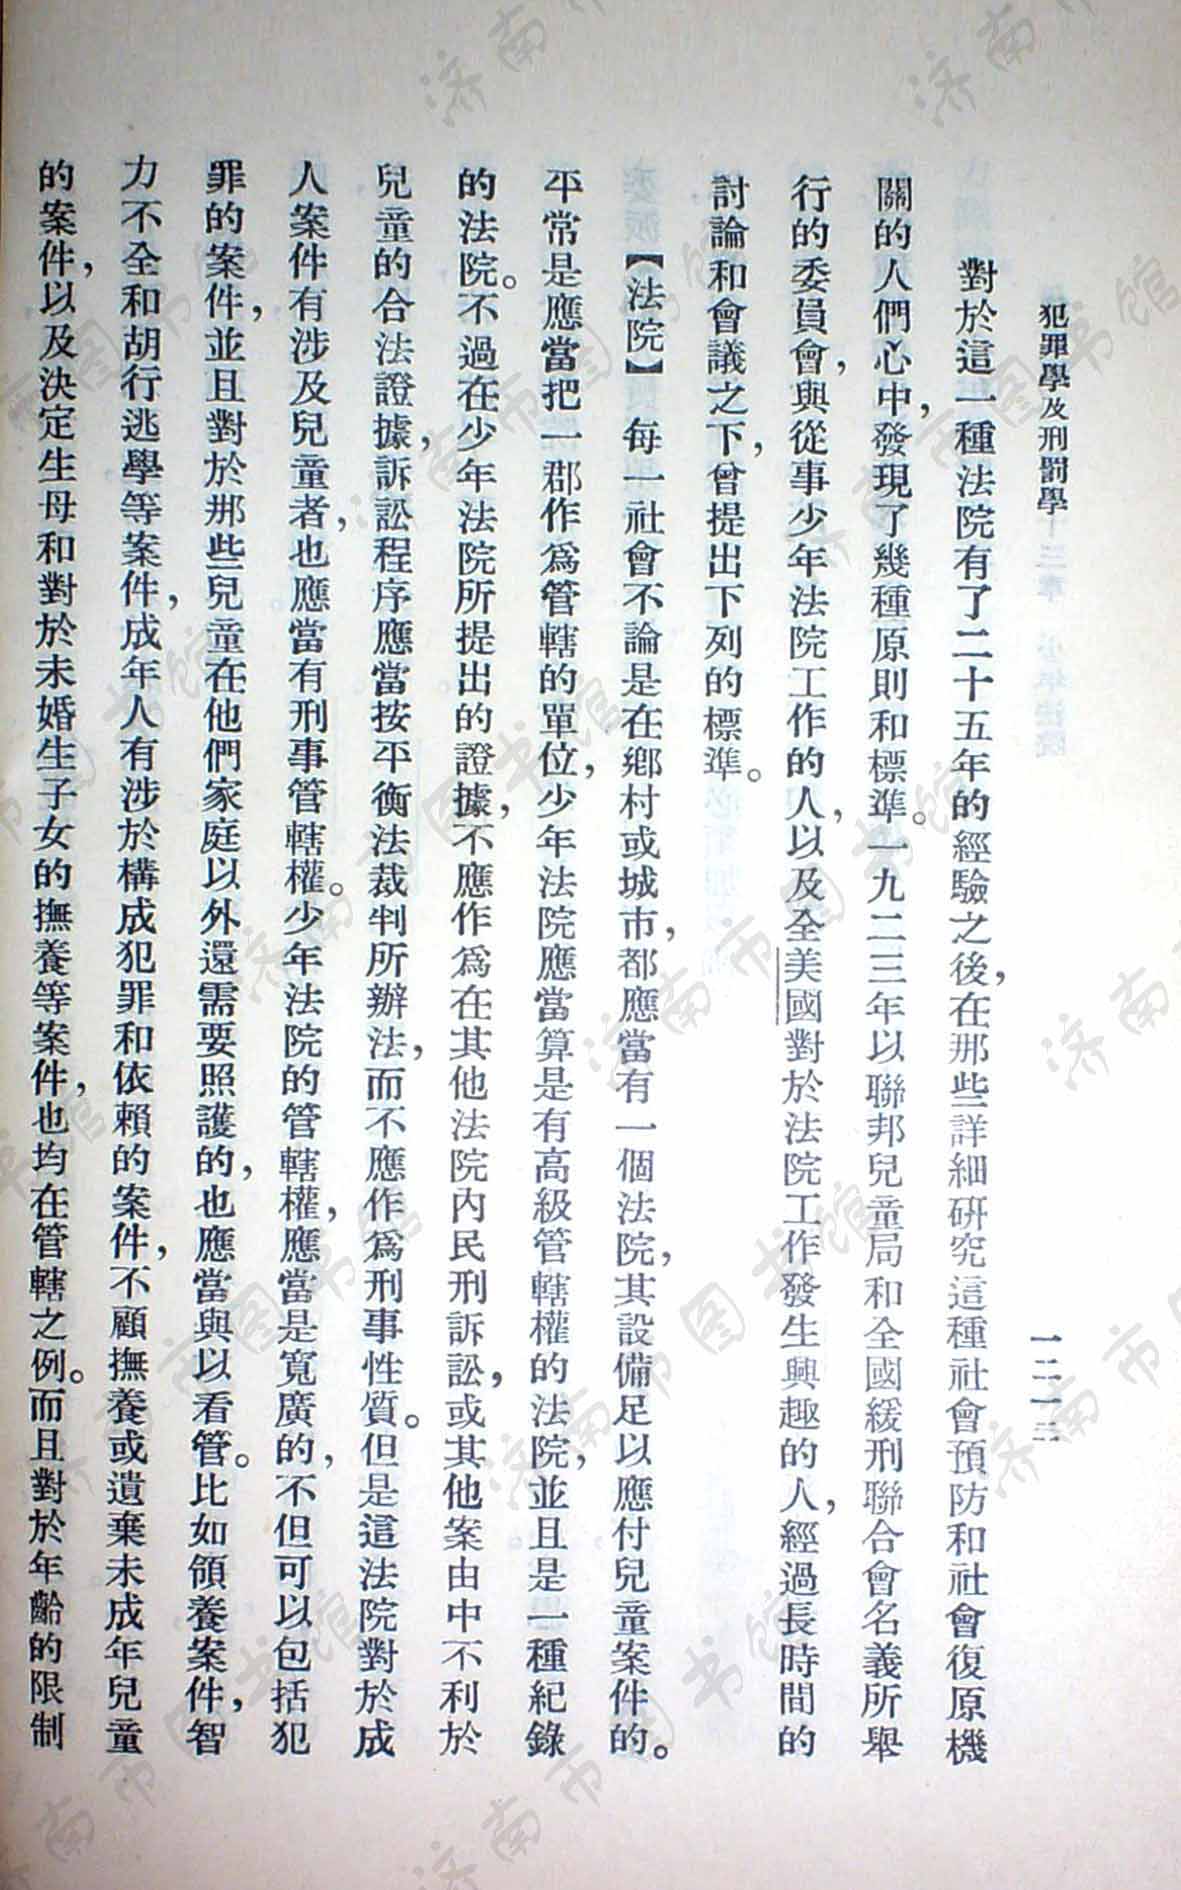 犯罪學及刑罰學
一二一二
對於這一種法院有了二十五年的經驗之後，在那些詳細研究這種社會預防和社會復原機
關的人們心中，發現了幾種原則和標準。一九二三年以聯邦兒童局和全國緩刑聯合會名義所舉
行的委員會，與從事少年法院工作的人，以及全美國對於法院工作發生興趣的人，經過長時間的
討論和會議之下，曾提出下列的標準。
【法院】每一社會不論是在鄉村或城市，都應當有一個法院，其設備足以應付兒童案件的。
平常是應當把一郡作爲管轄的單位，少年法院應當算是有高級管轄權的法院，並且是一種紀錄
的法院。不過在少年法院所提出的證據，不應作爲在其他法院內民刑訴訟，或其他案由中不利於
兒童的合法證據，訴訟程序應當按平衡法裁判所辦法，而不應作爲刑事性質。但是這法院對於成
人案件有涉及兒童者，也應當有刑事管轄權。少年法院的管轄權，應當是寬廣的，不但可以包括犯
罪的案件，並且對於那些兒童在他們家庭以外還需要照護的，也應當與以看管。比如領養案件，智
力不全和胡行逃學等案件，成年人有涉於構成犯罪和依賴的案件，不顧撫養或遺棄未成年兒童
的案件，以及決定生母和對於未婚生子女的撫養等案件，也均在管轄之例。而且對於年齡的限制
济南市图书馆